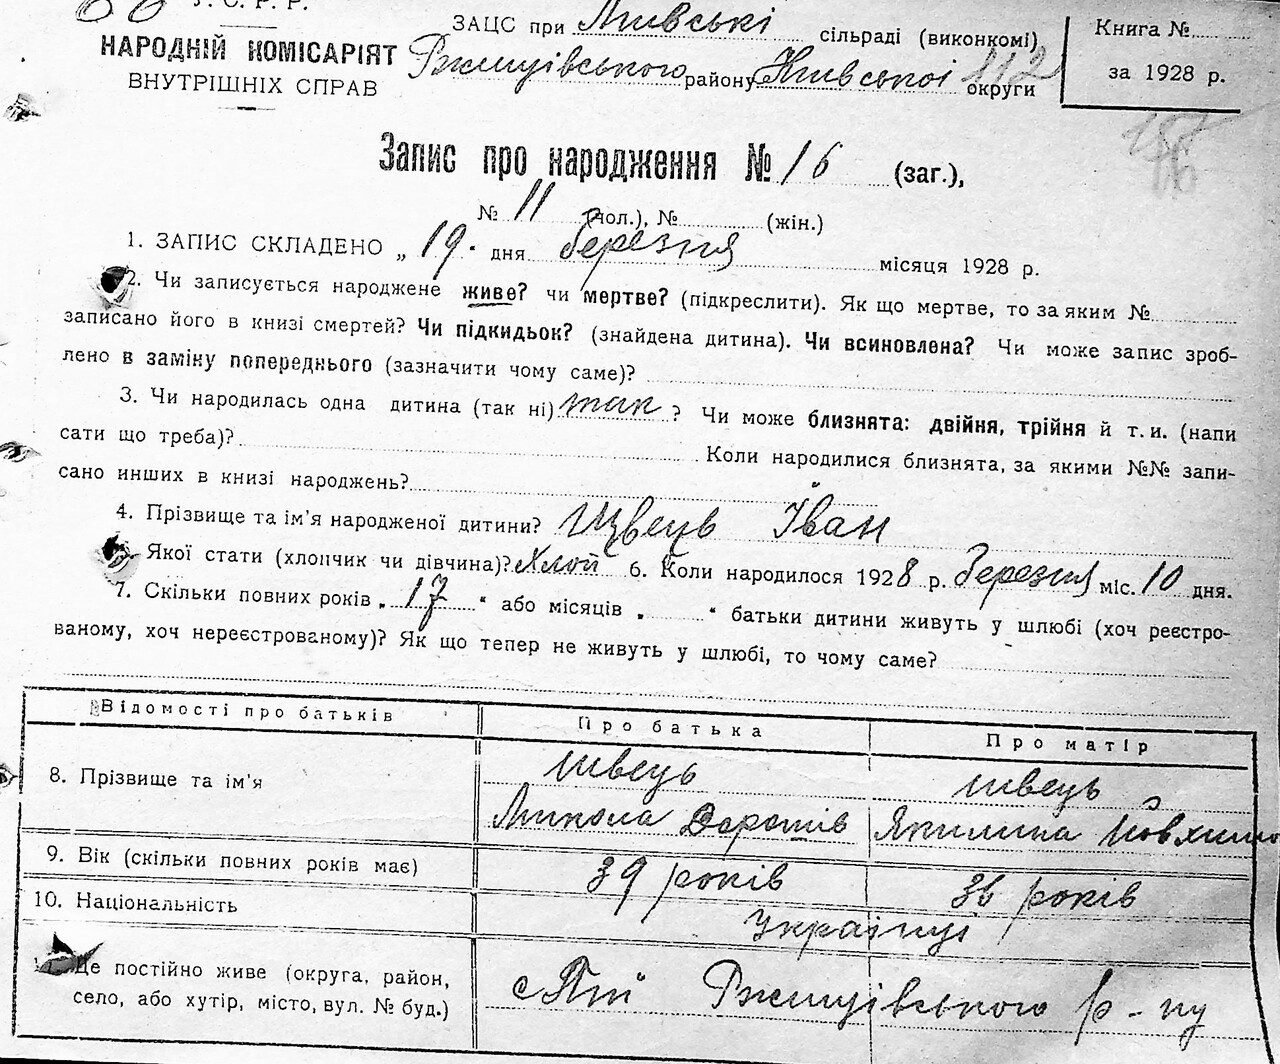 У. С. Р. Р.
НАРОДНІЙ КОМІСАРІЯТ
ВНУТРІШНІХ СПРАВ
ЗАЦС при сільраді (виконкомі)
Ржищівського району Київської округи
112
Книга №
за 1928 р.
Запис про народження № 16 (заг.),
№ 11 (чол.), № (жін.)
1. ЗАПИС СКЛАДЕНО „ 19. дня березня місяця 1928 р.
2. Чи записується народжене живе? чи мертве? (підкреслити). Як що мертве, то за яким №
записано його в книзі смертей? Чи підкидьок? (знайдена дитина). Чи всиновлена? Чи може запис зроб-
лено в заміну попереднього (зазначити чому саме)?
3. Чи народилась одна дитина (так ні) так ? Чи може близнята: двійня, трійня й т. и. (напи
сати що треба)? Коли народилися близнята, за якими №№ запи-
сано инших в книзі народжень?
4. Прізвище та ім'я народженої дитини? Швець Іван
Якої стати (хлопчик чи дівчина)? Хлоп 6. Коли народилося 1928 р. березня міс. 10 дня.
7. Скільки повних років „ 17 “ або місяців „ “ батьки дитини живуть у шлюбі (хоч реєстро-
ваному, хоч нереєстрованому)? Як що тепер не живуть у шлюбі, то чому саме?
Відомості про батьків Про батька Про матір
8. Прізвище та ім'я Швець Швець
Микола Якилина
9. Вік (скільки повних років має) 39 років 36 років
10. Національність Українці
11. Де постійно живе (округа, район, село, або хутір, місто, вул. № буд.) с Пії Ржищівського р-ну